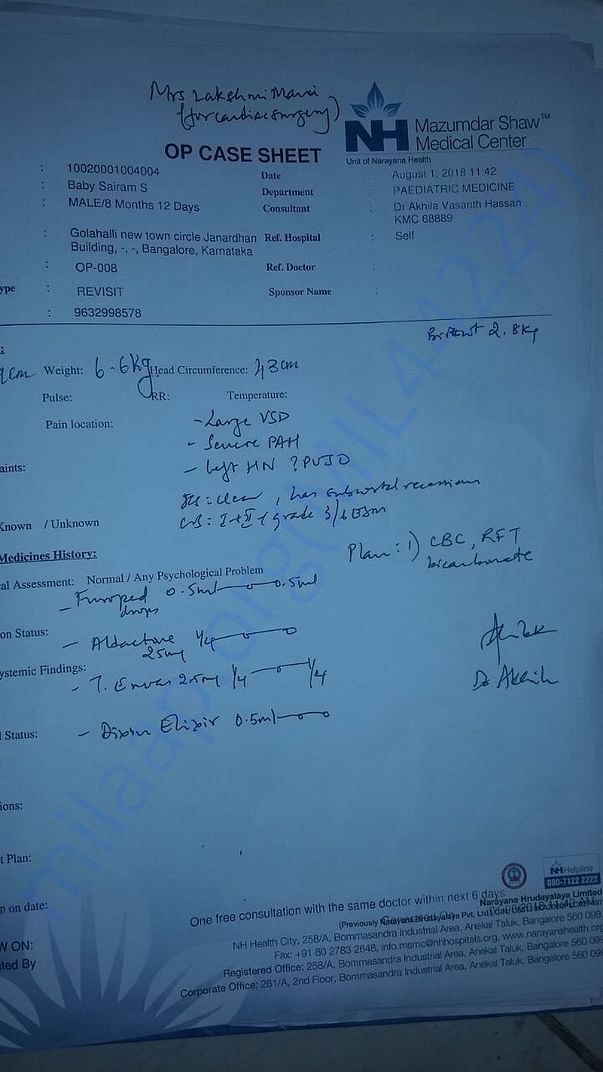 Mrs Lakshmi Mani
(for cardiac surgery)
NH Mazumdar Shaw™
Medical Center
Unit of Narayana Health
OP CASE SHEET
: 10020001004004 Date : August 1, 2018 11:42
: Baby Sairam S Department : PAEDIATRIC MEDICINE
: MALE/8 Months 12 Days Consultant : Dr Akhila Vasanth Hassan ,
KMC 68889
: Golahalli new town circle Janardhan Ref. Hospital : Self
Building, -, -, Bangalore, Karnataka
: OP-008 Ref. Doctor :
ype : REVISIT Sponsor Name :
: 9632998578
2.8kg
cm Weight: 6.6kg Head Circumference: 43cm
Pulse: RR: Temperature:
Pain location: - Large VSD
- Severe PAH
aints: - left HN ? PUJO
RS: clear, has subcostal recessions
Known / Unknown CVS: I+II+ grade 3/6 ESM
Medicines History: Plan: 1) CBC, RFT
bicarbonate
al Assessment: Normal / Any Psychological Problem
- Furoped 0.5ml—o—0.5ml
drops
on Status: - Aldactone 1/4—o—o
25mg
ystemic Findings:
- T. Envas 2.5mg 1/4—o—1/4
Dr Akhila
l Status: - Dixin Elixir 0.5ml—o—o
ions:
t Plan:
p on date:
One free consultation with the same doctor within next 6 days
NH Helpline
080-7122 2222
Narayana Hrudayalaya Limited
W ON:
ted By
NH Health City, 258/A, Bommasandra Industrial Area, Anekal Taluk, Bangalore 560 099,
Fax: +91 80 2783 2648, info.msmc@nhhospitals.org, www.narayanahealth.org
Registered Office: 258/A, Bommasandra Industrial Area, Anekal Taluk, Bangalore 560 099
Corporate Office: 261/A, 2nd Floor, Bommasandra Industrial Area, Anekal Taluk, Bangalore 560 099
milaap.org(MIL44224)